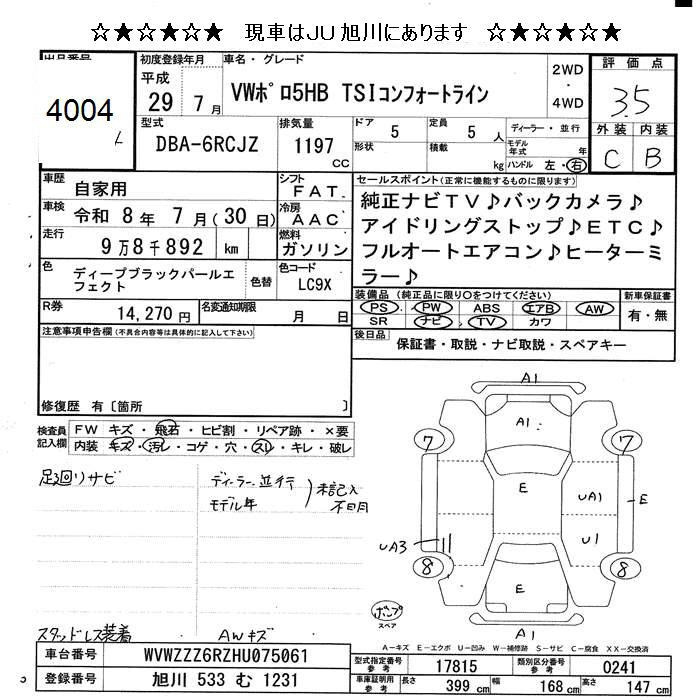 ☆★☆★☆★ 現車はJU旭川にあります ☆★☆★☆★
出品番号
4004
初度登録年月
平成
29年 7月
車名・グレード
VWポロ5HB TSIコンフォートライン
2WD
・
4WD
評価点
3.5
外装 内装
C B
型式
DBA-6RCJZ
排気量
1197 CC
ドア 5
形状
定員 5 人
積載 kg
ディーラー・並行
モデル年式 年
ハンドル 左・右
車歴
自家用
シフト
FAT
車検
令和 8年 7月(30日)
冷房
AAC
走行
9万8千892 km
燃料
ガソリン
色
ディープブラックパールエフェクト
色替
色コード
LC9X
R券
14,270円
名変通知期限
月 日
セールスポイント(正常に機能するものに限ります)
純正ナビTV♪バックカメラ♪
アイドリングストップ♪ETC♪
フルオートエアコン♪ヒーターミ
ラー♪
装備品 (純正品に限り○をつけてください)
PS・PW ABS エアB AW
SR ナビ TV カワ
新車保証書
有・無
後日品
保証書・取説・ナビ取説・スペアキー
注意事項申告欄(不具合内容等は具体的に記入して下さい)
修復歴 有〔箇所 〕
検査員記入欄
FW キズ・飛石・ヒビ割・リペア跡・×要
内装 キズ・汚レ・コゲ・穴・スレ・キレ・破レ
足廻りサビ
ディーラー、並行
モデル年
未記入
不明
スタッドレス装着
AWキズ
A1
A1
7
7
E
UA1
E
UA3
U1
8
8
E
A1
ポンプ
スペア
A-キズ E-エクボ U-凹み W-補修跡 S-サビ C-腐食 XX-交換済
車台番号 WVWZZZ6RZHU075061
登録番号 旭川 533 む 1231
型式指定番号 参考 17815
類別区分番号 参考 0241
車庫証明用 参考 長さ 399 cm 幅 168 cm 高さ 147 cm